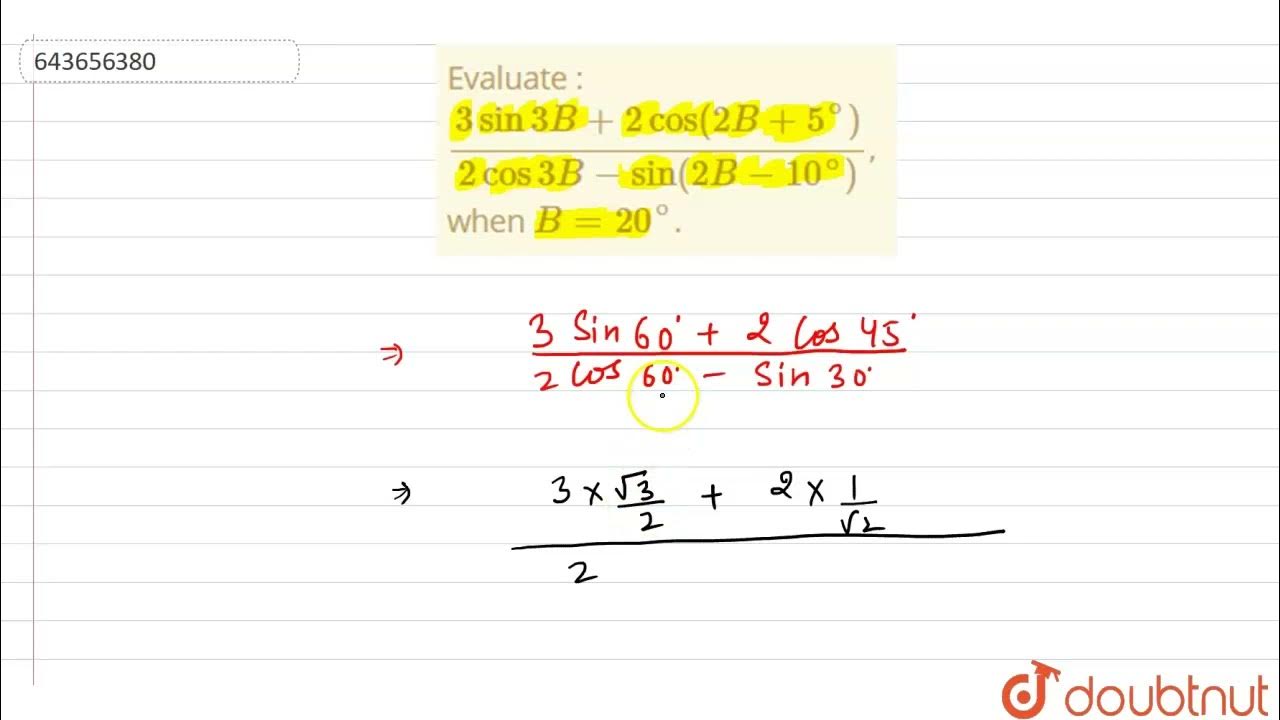 643656380
Evaluate :
3 sin 3B + 2 cos(2B + 5°)
2 cos 3B − sin(2B − 10°) ,
when B = 20°.
⇒ 3 Sin 60° + 2 Cos 45°
2 Cos 60° − Sin 30°
⇒ 3 × √3/2 + 2 × 1/√2
2
doubtnut